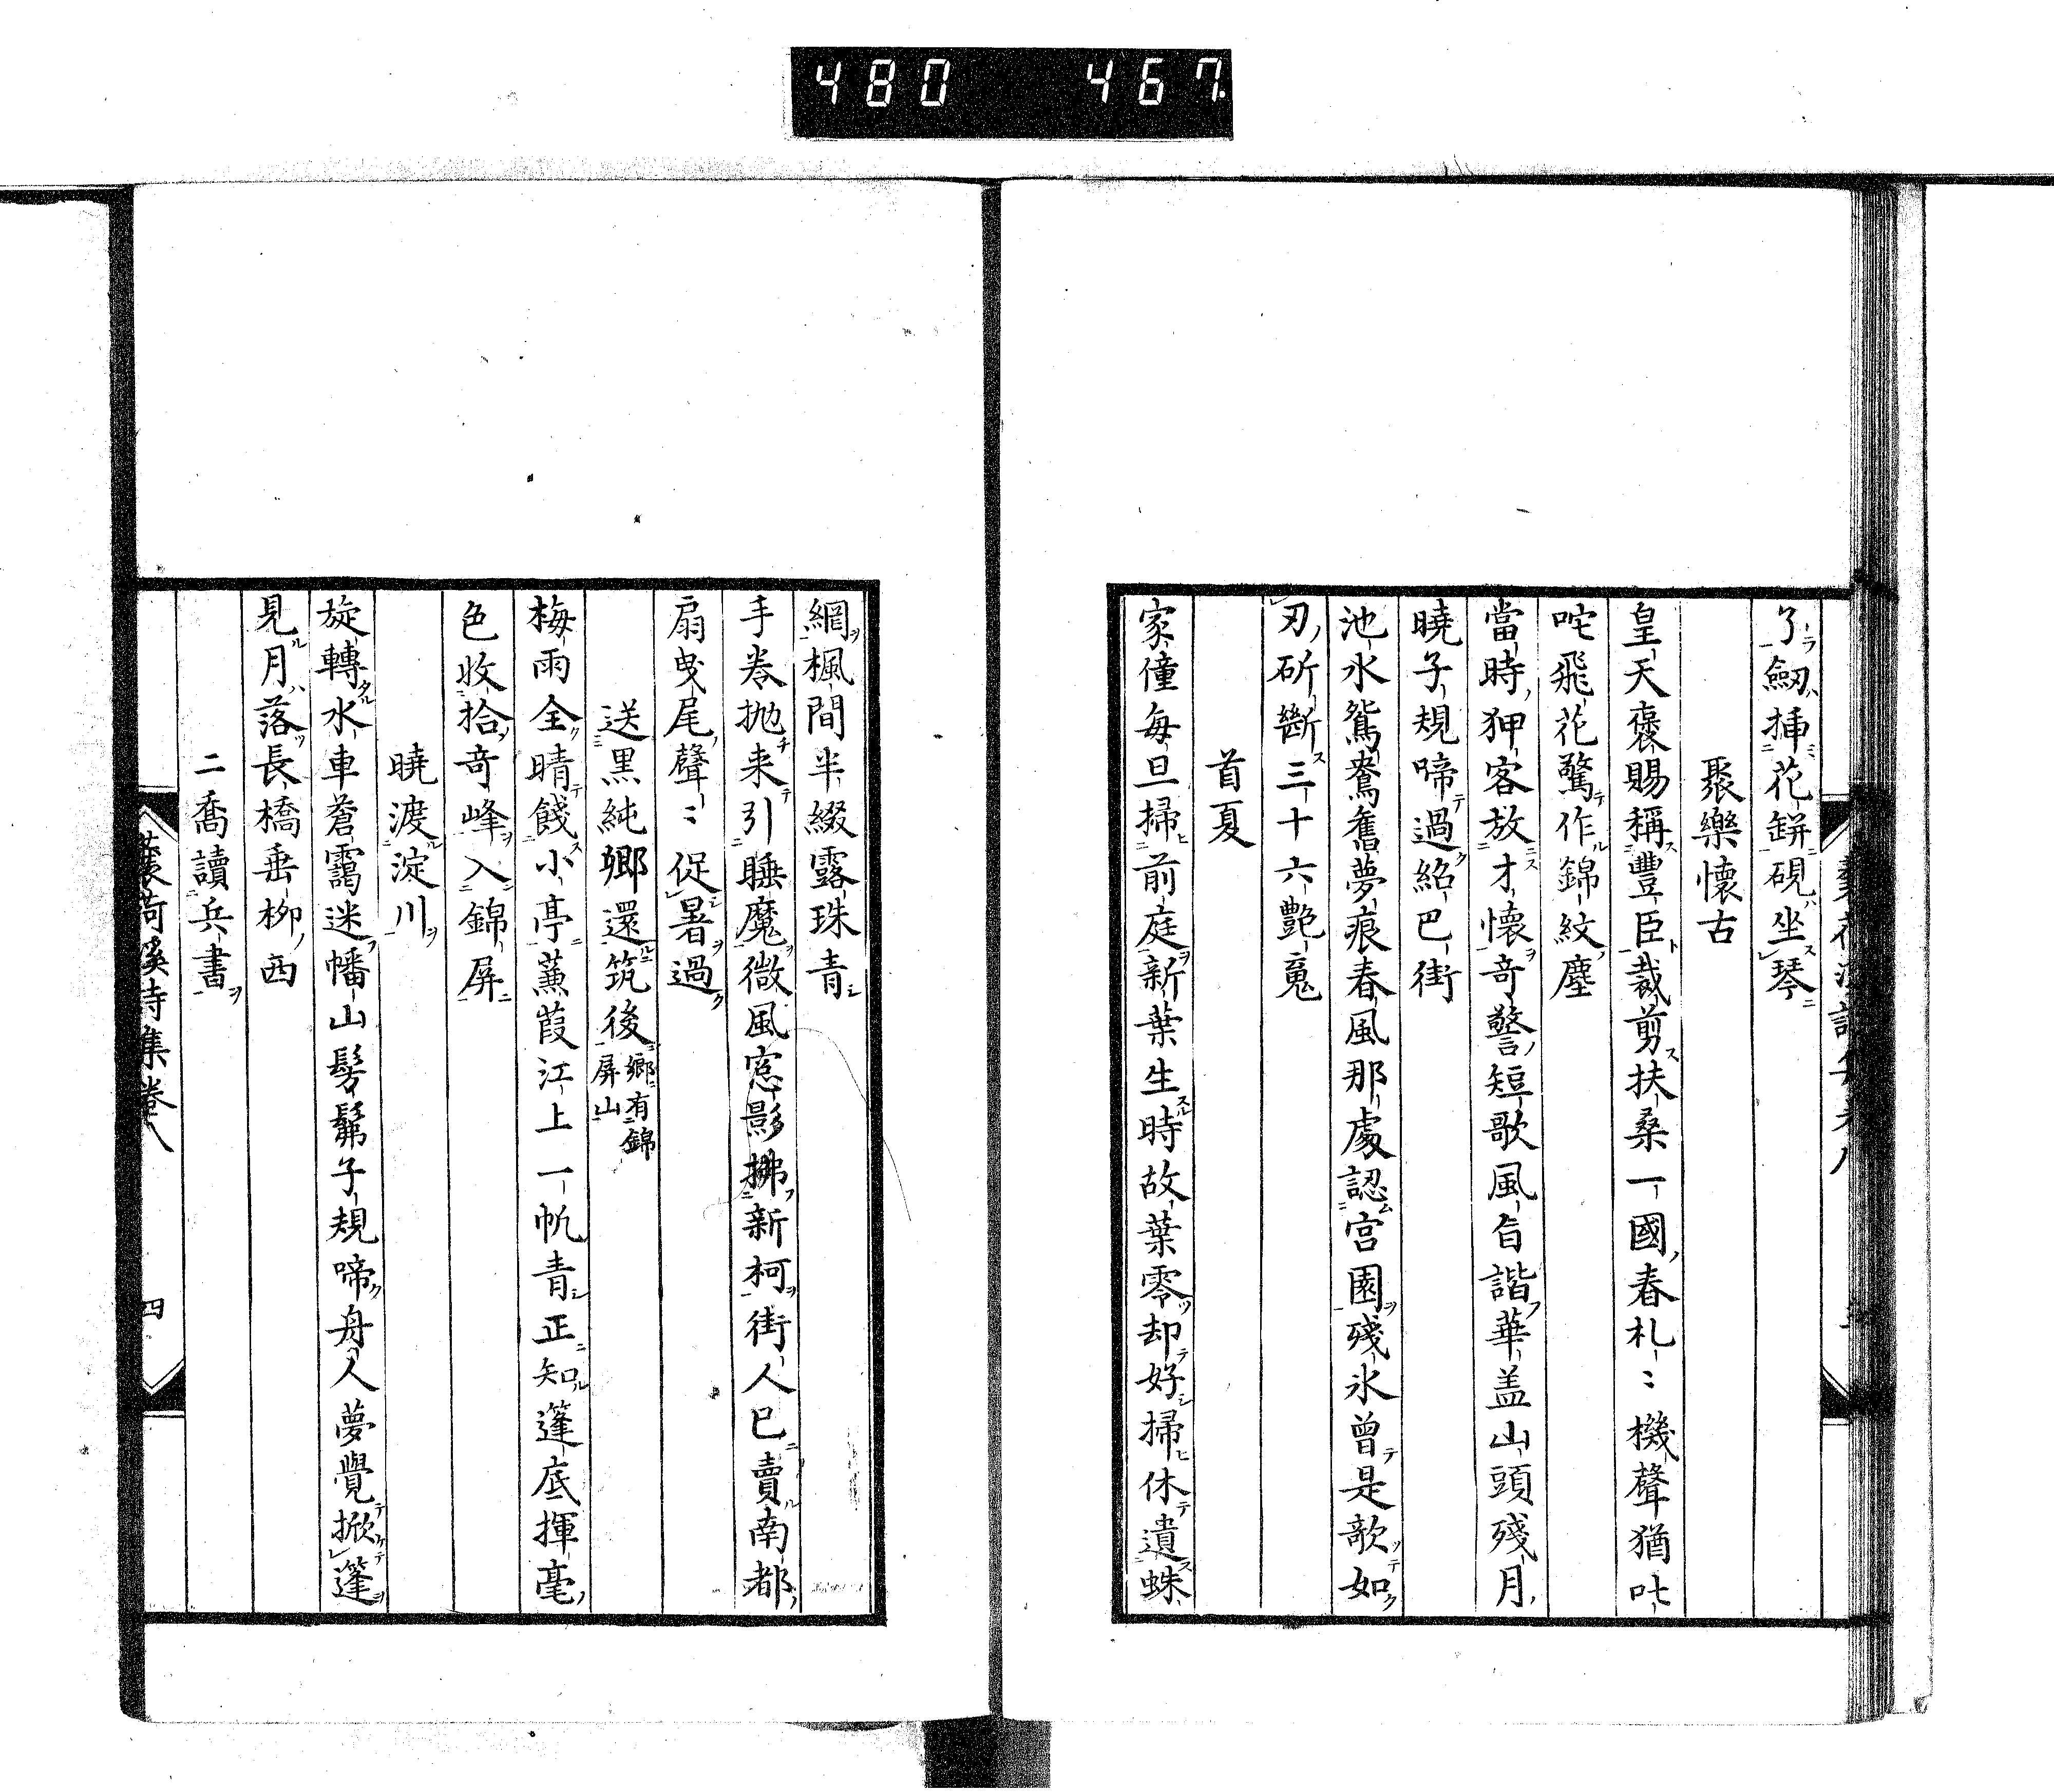 480 467
了劒挿花缾硯坐琴
聚樂懷古
皇天褒賜稱豐臣裁剪扶桑一國春札〻機聲猶吐
咤飛花驚作錦紋塵
當時狎客放才懷奇警短歌風旨諧華盖山頭殘月
曉子規啼過紹巴街
池水鴛鴦舊夢痕春風那處認宮園殘氷曾是歃如
刃斫斷三十六艶䰟
首夏
家僮每旦掃前庭新葉生時故葉零却好掃休遺蛛
網楓間半綴露珠青
手卷抛来引睡魔微風窓影拂新柯街人已賣南都
扇曳尾聲〻促暑過
送黑純卿還筑後卿有錦屏山
梅雨全晴餞小亭蒹葭江上一帆青正知篷底揮毫
色收拾奇峰入錦屏
曉渡淀川
旋轉水車蒼靄迷幡山髣髴子規啼舟人夢覺掀篷
見月落長橋垂柳西
二喬讀兵書
荷溪詩集卷八 四